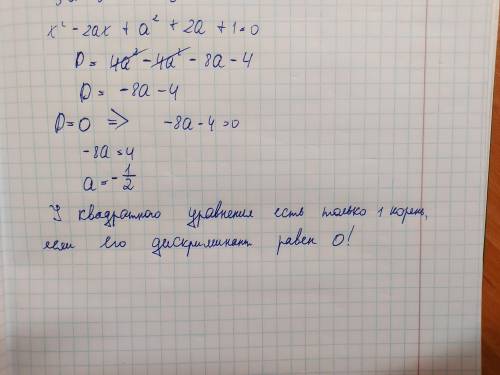 x² - 2ax + a² + 2a + 1 = 0
D = 4a² - 4a² - 8a - 4
D = -8a - 4
D = 0 => -8a - 4 = 0
-8a = 4
a = -1/2
У квадратного уравнения есть только 1 корень,
если его дискриминант равен 0!